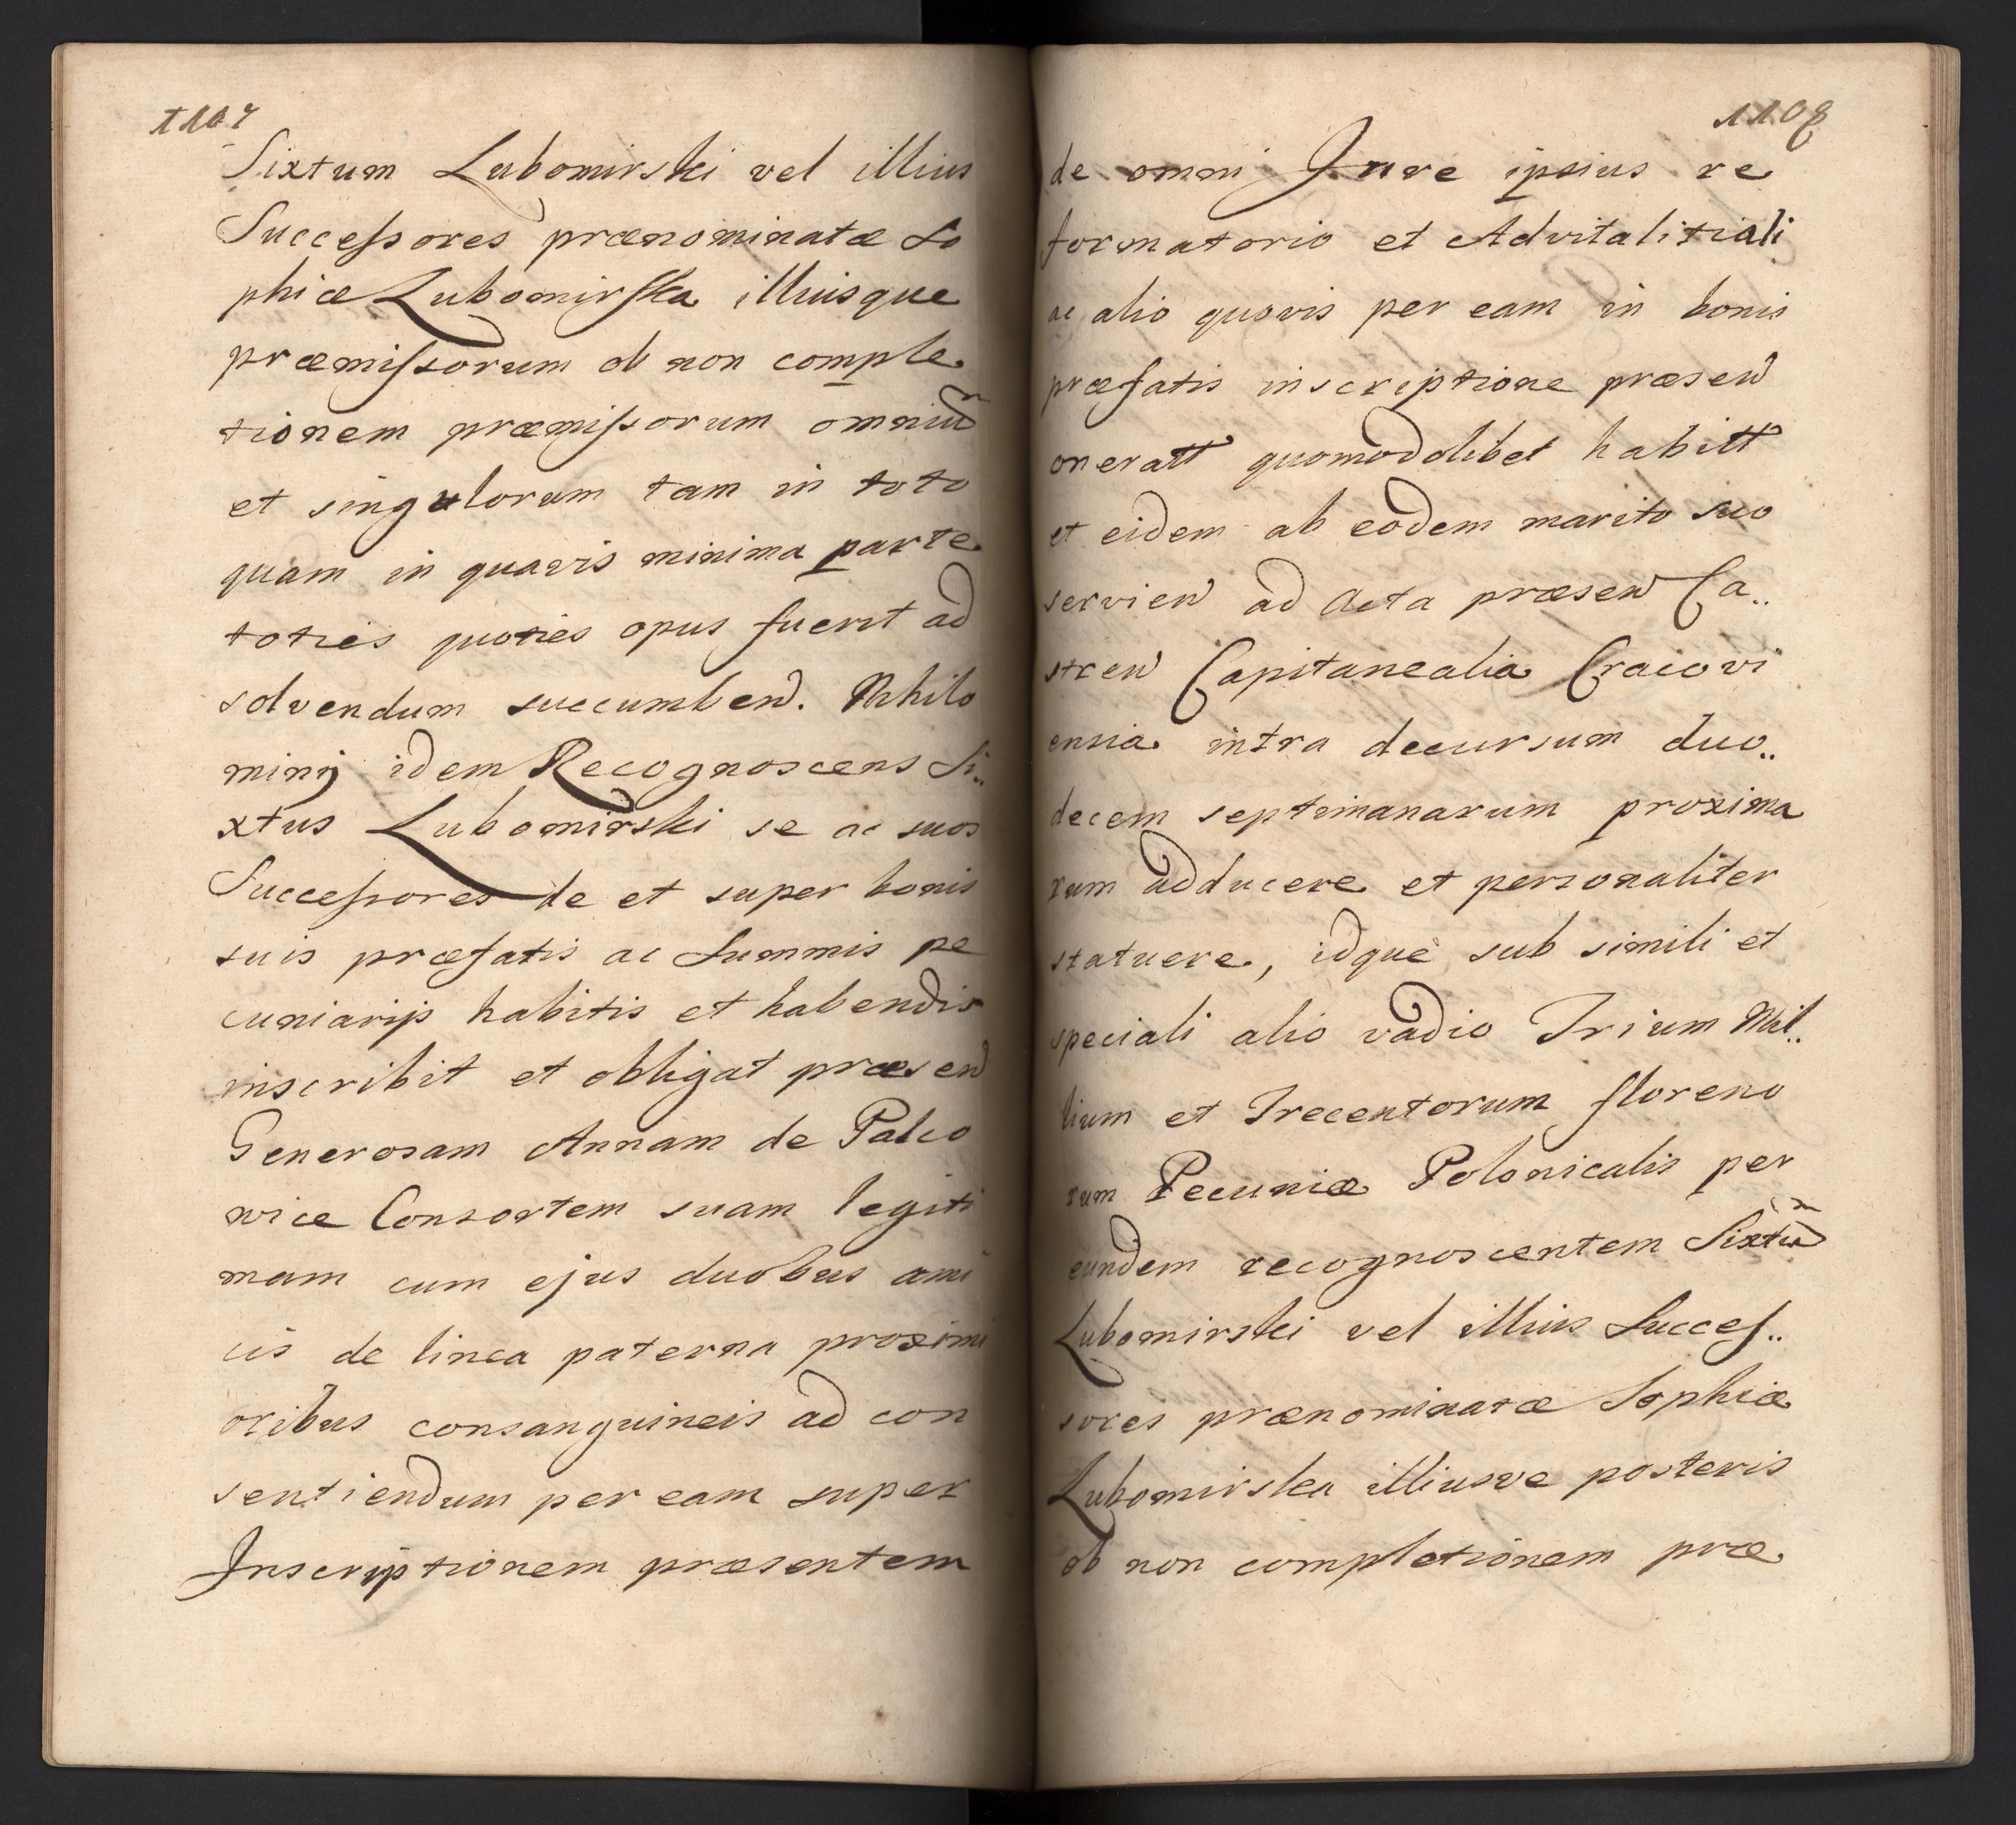 1107
Sixtum Lubomirski vel illius
Successores prænominatæ So
phiæ Lubomirska illiusque
præmissorum ob non comple
tionem præmissorum omniu͂
et singulorum tam in toto
quam in quavis minima parte
toties quoties opus fuerit ad
solvendum succumben͂d. Nihilo
miny idem Recognoscens Si..
xtus Lubomirski se ac suos
Successores de et super bonis
suis præfatis ac Summis pe
cuniarijs habitis et habendis
inscribit et obligat præsen͂
Generosam Annam de Palco
wice Consortem suam legiti
mam cum ejus duobus ami
cis de linea paterna proximi
oribus consanguineis ad con
sentiendum per eam super
Inscriptionem præsentem
1108
de omni Jure ipsius re
formatorio et Advitalitiali
ac alio quovis per eam in bonis
præfatis inscriptione præsen͂
oneratt quomodolibet habitt
et eidem ab eodem marito suo
servien͂ ad Acta præsen͂ Ca..
stren͂ Capitanealia Cracovi
ensia intra decursum duo..
decem septimanarum proxima
rum adducere et personaliter
statuere, idque sub simili et
speciali alio vadio Trium Mil..
lium et Trecentorum floreno
rum Pecuniæ Polonicalis per
eundem recognoscentem Sixtu͂
Lubomirski vel illius Succes..
sores prænominatæ Sophiæ
Lubomirska illiusve posteris
ob non completionem præ